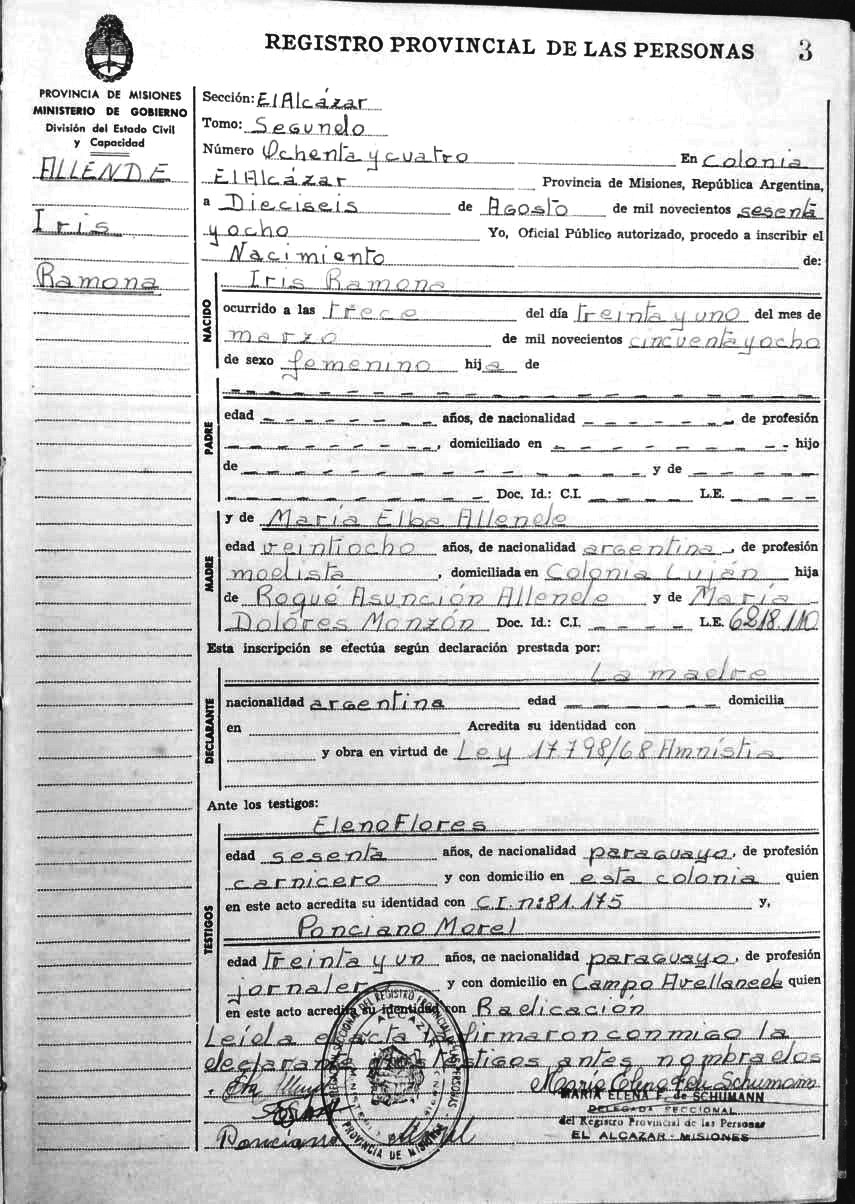 REGISTRO PROVINCIAL DE LAS PERSONAS 3
PROVINCIA DE MISIONES
MINISTERIO DE GOBIERNO
División del Estado Civil
y Capacidad
ALLENDE
Iris
Ramona
Sección: El Alcázar
Tomo: Segundo
Número Ochenta y cuatro En Colonia
El Alcázar Provincia de Misiones, República Argentina,
a Dieciseis de Agosto de mil novecientos sesenta
y ocho Yo, Oficial Público autorizado, procedo a inscribir el
Nacimiento de:
NACIDO
Iris Ramona
ocurrido a las trece del día treinta y uno del mes de
marzo de mil novecientos cincuenta y ocho
de sexo femenino hija de
PADRE
edad años, de nacionalidad , de profesión
, domiciliado en hijo
de y de
Doc. Id.: C.I. L.E.
y de María Elba Allende
MADRE
edad veintiocho años, de nacionalidad argentina, de profesión
modista, domiciliada en Colonia Luján hija
de Roqué Asunción Allende y de María
Dolóres Monzón Doc. Id.: C.I. L.E. 6218.110
Esta inscripción se efectúa según declaración prestada por:
La madre
DECLARANTE
nacionalidad argentina edad domicilia
en Acredita su identidad con
y obra en virtud de Ley 17798/68 Amnistia
Ante los testigos:
Eleno Flores
TESTIGOS
edad sesenta años, de nacionalidad paraguayo, de profesión
carnicero y con domicilio en esta colonia quien
en este acto acredita su identidad con C.I. nº 81.175 y,
Ponciano Morel
edad treinta y un años, de nacionalidad paraguayo, de profesión
jornalero y con domicilio en Campo Avellaneda quien
en este acto acredita su identidad con Radicación
Leída el acta firmaron conmigo la
declarante testigos antes nombrados
María Elena F. de Schumann
MARIA ELENA F. de SCHUMANN
DELEGADA SECCIONAL
del Registro Provincial de las Personas
EL ALCAZAR - MISIONES
Ponciano Morel
DELEGACION SECCIONAL DEL REGISTRO PROVINCIAL DE LAS PERSONAS
ALCAZAR
PROVINCIA DE MISIONES